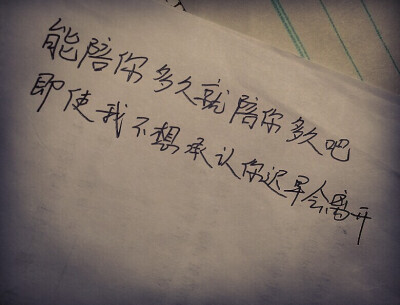 能陪你多久就陪你多久吧
即使我不想承认你迟早会离开